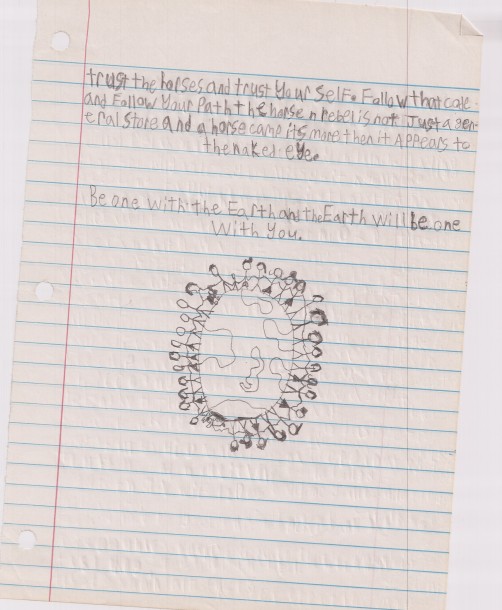 trust the horses and trust your self. Follow that cale
and Follow Your Path the horse n rebel is not Just a gen-
eral Store And a horse camp its more then it APPears to
the naked eye.
Be one with the Earth and the Earth will be one
With You.